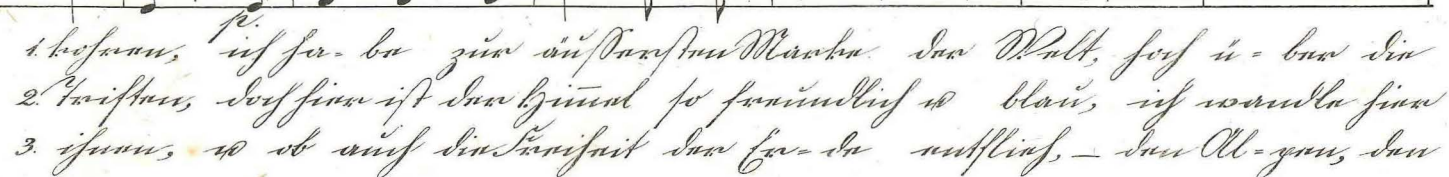 p.
1. kohren, ich ha- be zur äußersten Marke der Welt, hoch ü- ber die
2. Triften, doch hier ist der Himmel so freundlich u blau, ich wandle hier
3. ihnen, u ob auch die Freiheit der Er- de entflieh, – den Al- pen, den